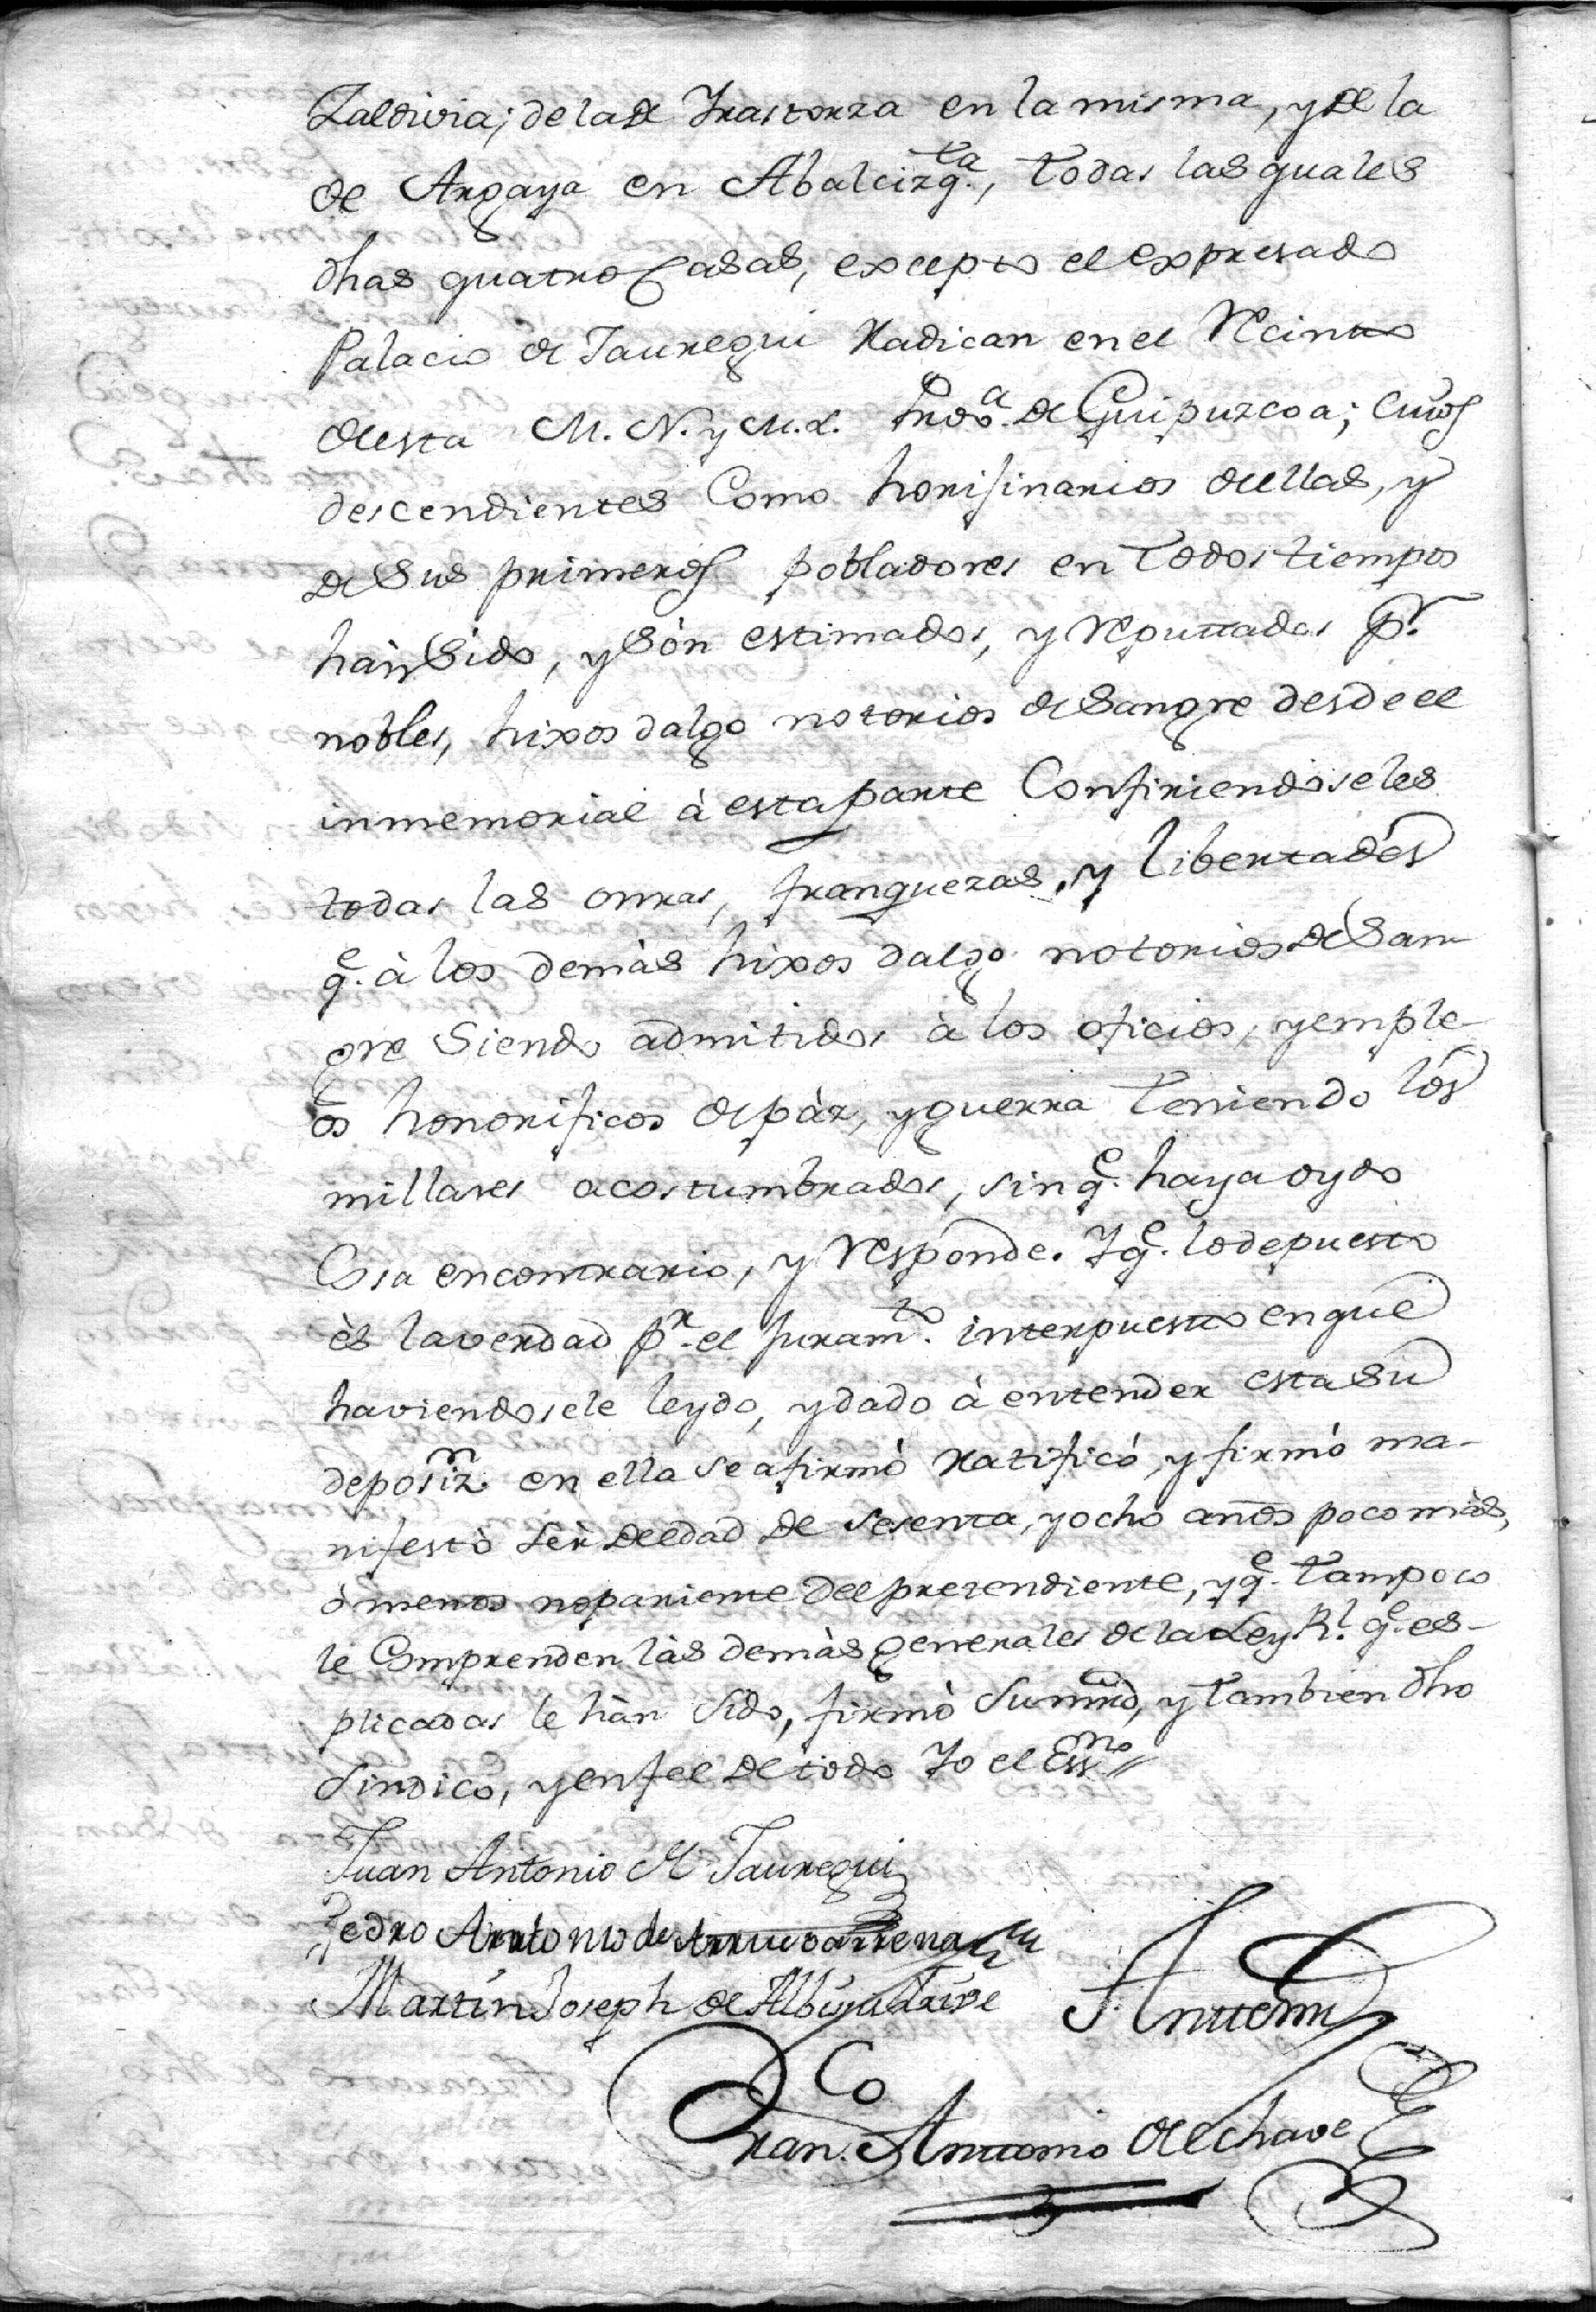 Zaldivia; de la de Irastorza en la misma, y de la
de Argaya en Abalcizq.ta, todas las quales
dhas quatro Casas, excepto el expresado
Palacio de Jauregui Radican en el Recinto
de esta M. N. y M. L. Prov.a de Guipuzcoa; cuios
descendientes Como horijinarios de ellas, y
de sus primeros pobladores en todos tiempos
hàn Sido, y Sòn estimados, y Reputtados p.r
nobles, hixos dalgo notorios de Sangre desde el
inmemorial à esta parte Confiriendoseles
todas las onrras, franquezas, y libertades
q.e à los demàs hixos dalgo notorios de San
gre Siendo admitidos à los oficios, y emple
os honorificos de pàz, y guerra teniendo los
millares acostumbrados, sin q.e haya oydo
Cosa en contrario, y Responde. Y q.e lo depuesto
ès la verdad p.r el juram.to interpuesto en que
haviendosele leydo, y dado à entender esta su
deposiz.n en ella se afirmò Ratificó, y firmò ma-
nifestò Sèr de edad de Sesenta, y ocho años poco màs,
ò menos no pariente del pretendiente, y q.e tampoco
le Comprenden làs demàs generales de la Ley R.l q.e es-
plicadas le hàn Sido, firmò Su mrd, y tambien dho
Sindico, y en fee de todo Yo el Essno
Juan Antonio de Jauregui
Pedro Antonio de
Martin Joseph de
Anttemi
Fran.co Anttonio de Echave